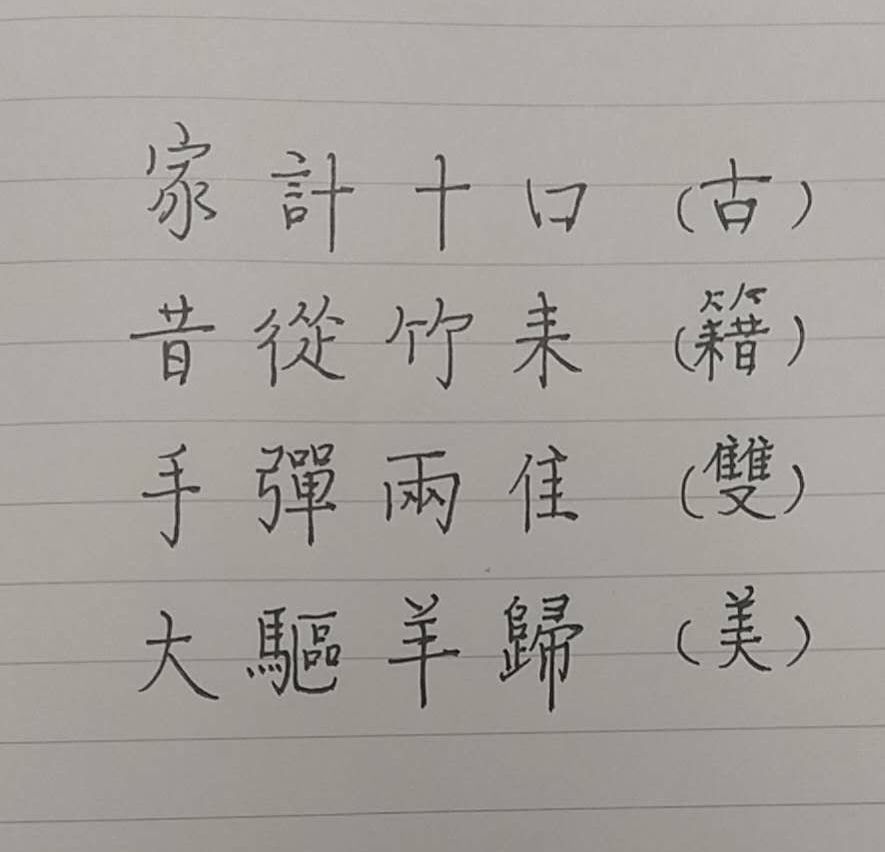 家計十口(古)
昔從竹耒(籍)
手彈兩隹(雙)
大驅羊歸(美)